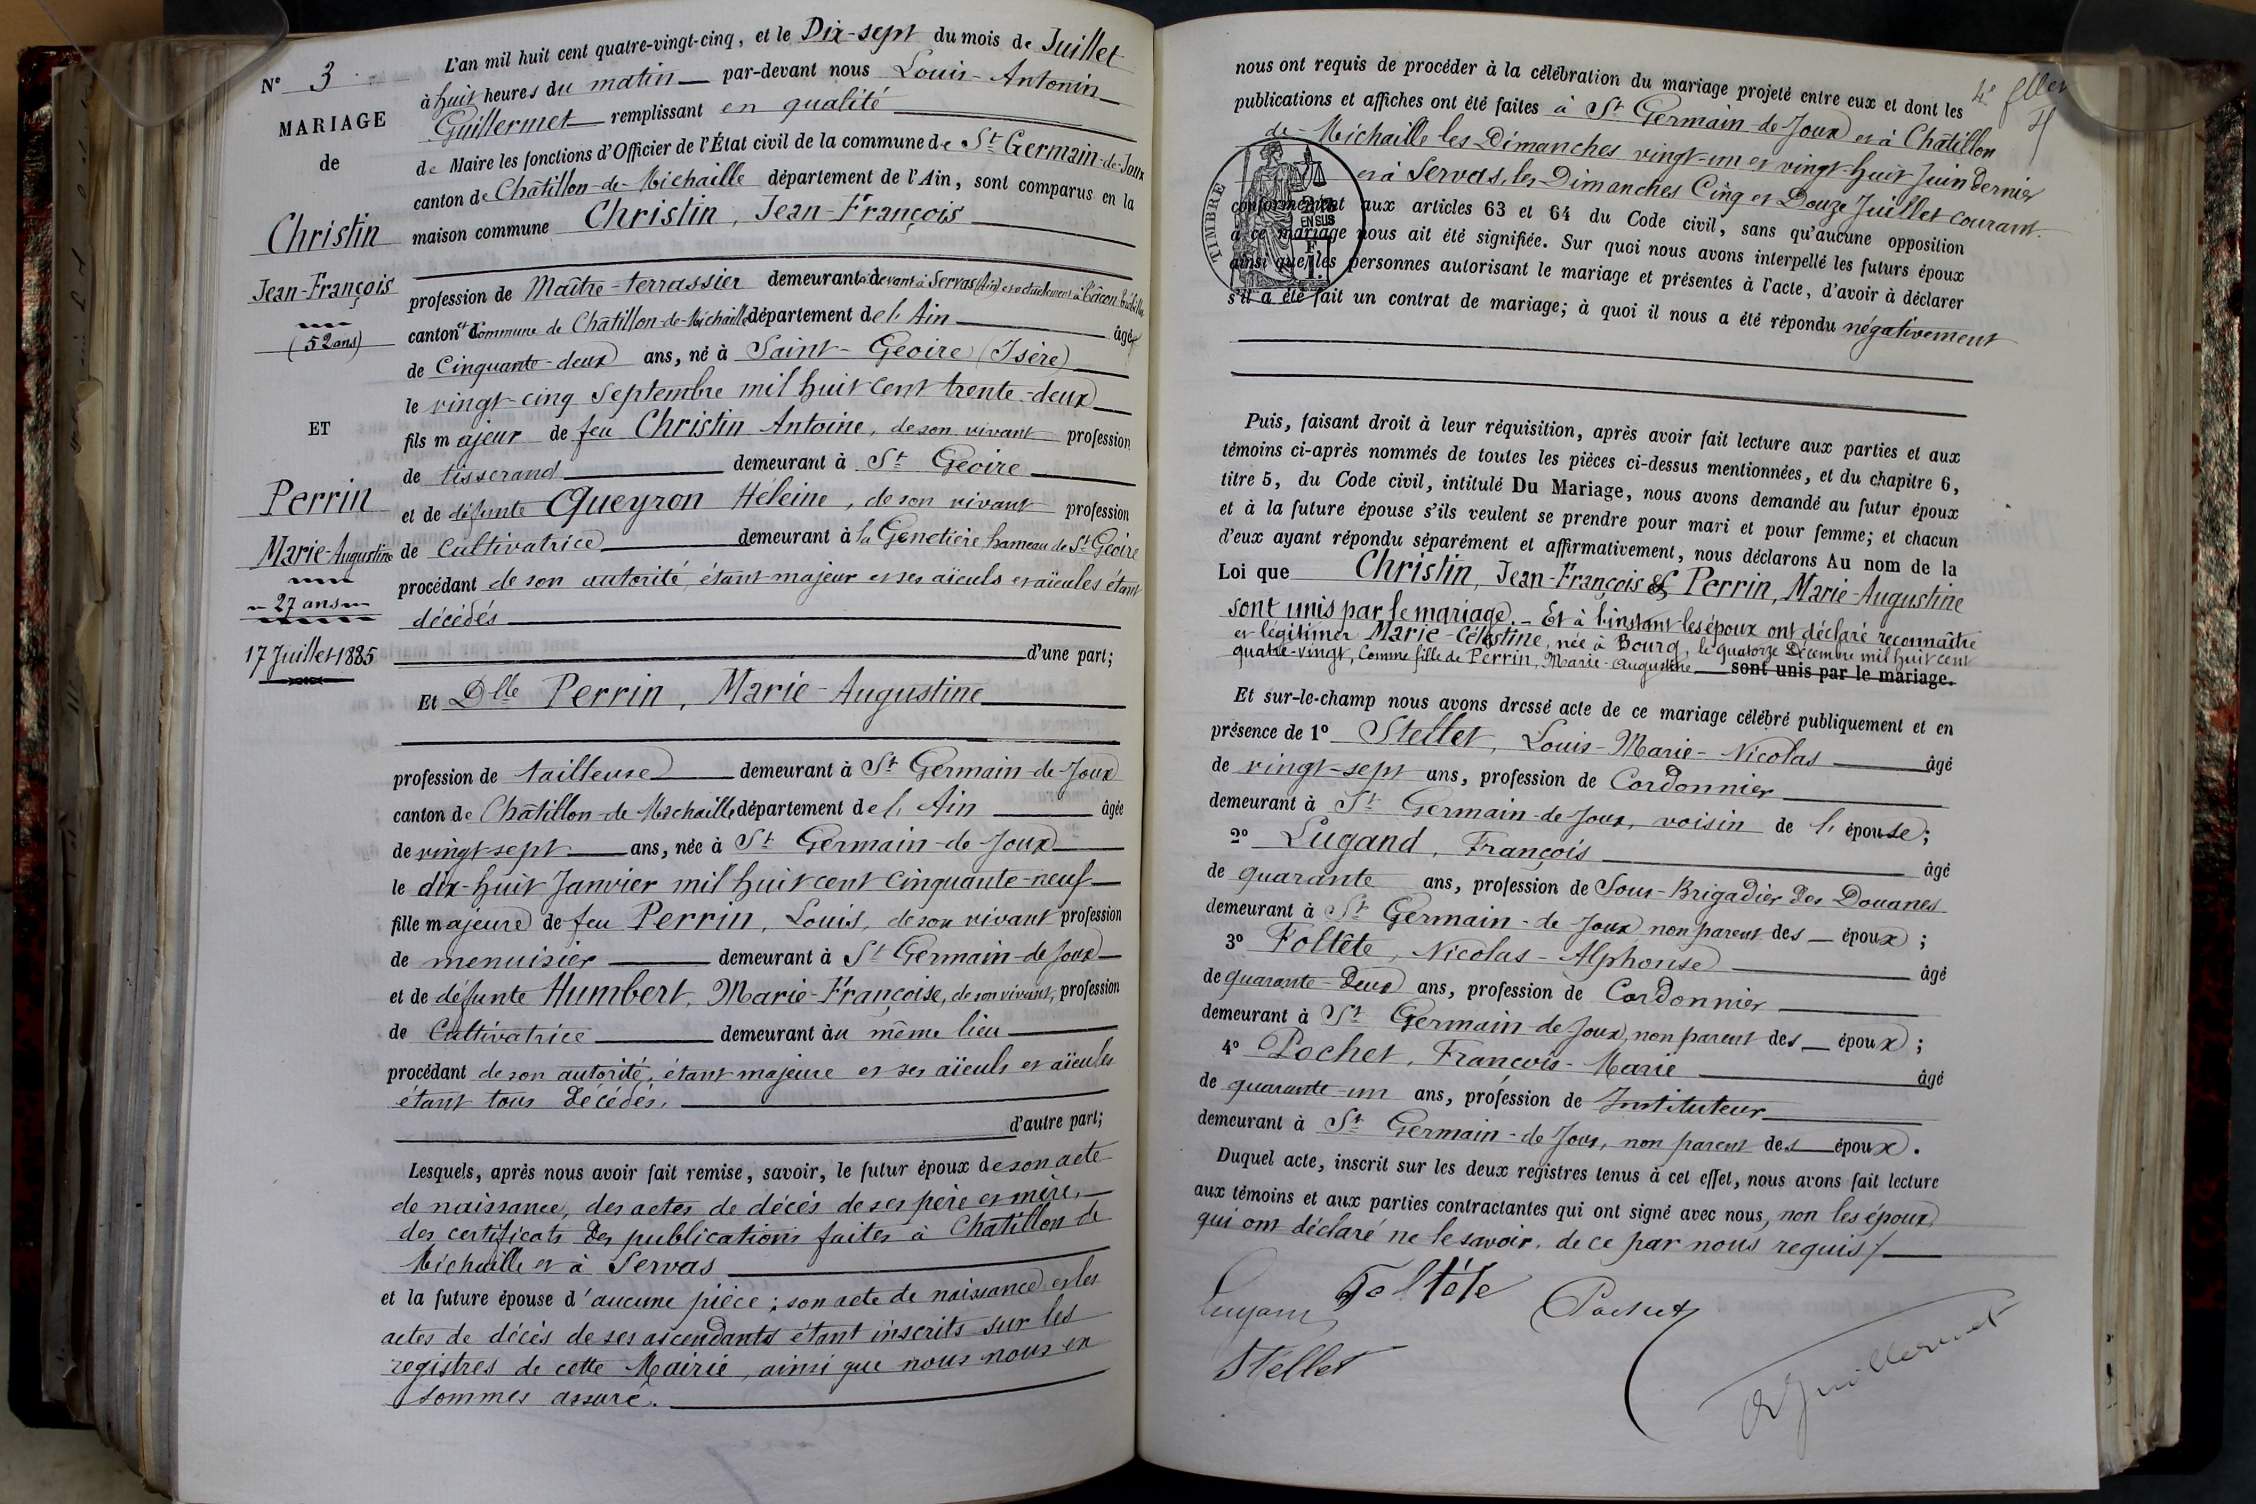 N° 3
MARIAGE
de
Christin
Jean-François
(52 ans)
ET
Perrin
Marie-Augustine
27 ans
17 Juillet 1885
L'an mil huit cent quatre-vingt-cinq, et le Dix-sept du mois de Juillet
à huit heures du matin par-devant nous Louis-Antonin
Guillermet remplissant en qualité
de Maire les fonctions d'Officier de l'État civil de la commune de St Germain-de-Joux
canton de Châtillon-de-Michaille département de l'Ain, sont comparus en la
maison commune Christin, Jean-François
profession de Maître-terrassier demeurant ci-devant à Servas (Ain) et actuellement à
canton et Commune de Châtillon-de-Michaille département de l'Ain âgé
de Cinquante-deux ans, né à Saint-Geoire (Isère)
le vingt-cinq Septembre mil huit cent trente-deux
fils majeur de feu Christin Antoine, de son vivant profession
de tisserand demeurant à St Geoire
et de défunte Queyron Héleine, de son vivant profession
de Cultivatrice demeurant à la Genetière hameau de St Geoire
procédant de son autorité, étant majeur et ses aïeuls et aïeules étant
décédés
d'une part;
Et Dlle Perrin, Marie-Augustine
profession de tailleuse demeurant à St Germain-de-Joux
canton de Châtillon-de-Michaille département de l'Ain âgée
de vingt-sept ans, née à St Germain-de-Joux
le dix-huit Janvier mil huit cent cinquante-neuf
fille majeure de feu Perrin, Louis, de son vivant profession
de menuisier demeurant à St Germain-de-Joux
et de défunte Humbert, Marie-Françoise, de son vivant, profession
de Cultivatrice demeurant au même lieu
procédant de son autorité, étant majeure et ses aïeuls et aïeules
étant tous décédés.
d'autre part;
Lesquels, après nous avoir fait remise, savoir, le futur époux de son acte
de naissance, des actes de décès de ses père et mère,
des certificats des publications faites à Châtillon de
Michaille et à Servas
et la future épouse d'aucune pièce; son acte de naissance et les
actes de décès de ses ascendants étant inscrits sur les
registres de cette Mairie, ainsi que nous nous en
sommes assuré.
nous ont requis de procéder à la célébration du mariage projeté entre eux et dont les
publications et affiches ont été faites à St Germain-de-Joux et à Châtillon
de-Michaille les Dimanches vingt-un et vingt-huit Juin dernier
et à Servas, les Dimanches Cinq et Douze Juillet courant.
conformément aux articles 63 et 64 du Code civil, sans qu'aucune opposition
à ce mariage nous ait été signifiée. Sur quoi nous avons interpellé les futurs époux
ainsi que les personnes autorisant le mariage et présentes à l'acte, d'avoir à déclarer
s'il a été fait un contrat de mariage; à quoi il nous a été répondu négativement
TIMBRE
EN SUS
Puis, faisant droit à leur réquisition, après avoir fait lecture aux parties et aux
témoins ci-après nommés de toutes les pièces ci-dessus mentionnées, et du chapitre 6,
titre 5, du Code civil, intitulé Du Mariage, nous avons demandé au futur époux
et à la future épouse s'ils veulent se prendre pour mari et pour femme; et chacun
d'eux ayant répondu séparément et affirmativement, nous déclarons Au nom de la
Loi que Christin, Jean-François & Perrin, Marie-Augustine
sont unis par le mariage. - Et à l'instant les époux ont déclaré reconnaître
et légitimer Marie-Célestine, née à Bourg, le quatorze Décembre mil huit cent
quatre-vingt, comme fille de Perrin, Marie-Augustine sont unis par le mariage.
Et sur-le-champ nous avons dressé acte de ce mariage célébré publiquement et en
présence de 1° Stellet, Louis-Marie-Nicolas âgé
de vingt-sept ans, profession de Cordonnier
demeurant à St Germain-de-Joux, voisin de l'épouse;
2° Lugand, François âgé
de quarante ans, profession de Sous-Brigadier des Douanes
demeurant à St Germain-de Joux non parent des époux;
3° Foltête, Nicolas-Alphonse âgé
de quarante-deux ans, profession de Cordonnier
demeurant à St Germain-de Joux, non parent des époux;
4° Pochet, François-Marie âgé
de quarante-un ans, profession de Instituteur
demeurant à St Germain-de Joux, non parent des époux.
Duquel acte, inscrit sur les deux registres tenus à cet effet, nous avons fait lecture
aux témoins et aux parties contractantes qui ont signé avec nous, non les époux
qui ont déclaré ne le savoir, de ce par nous requis.
Lugand Foltête Pochet
Stellet Guillermet